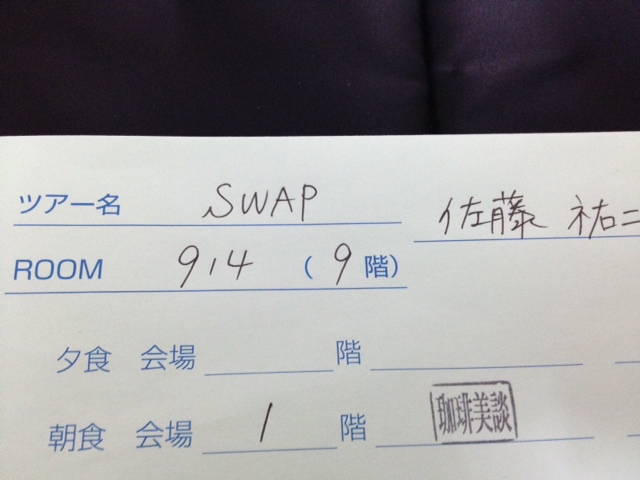 ツアー名 SWAP 佐藤 祐二
ROOM 914 (9階)
夕食 会場 階
朝食 会場 1 階 珈琲美談